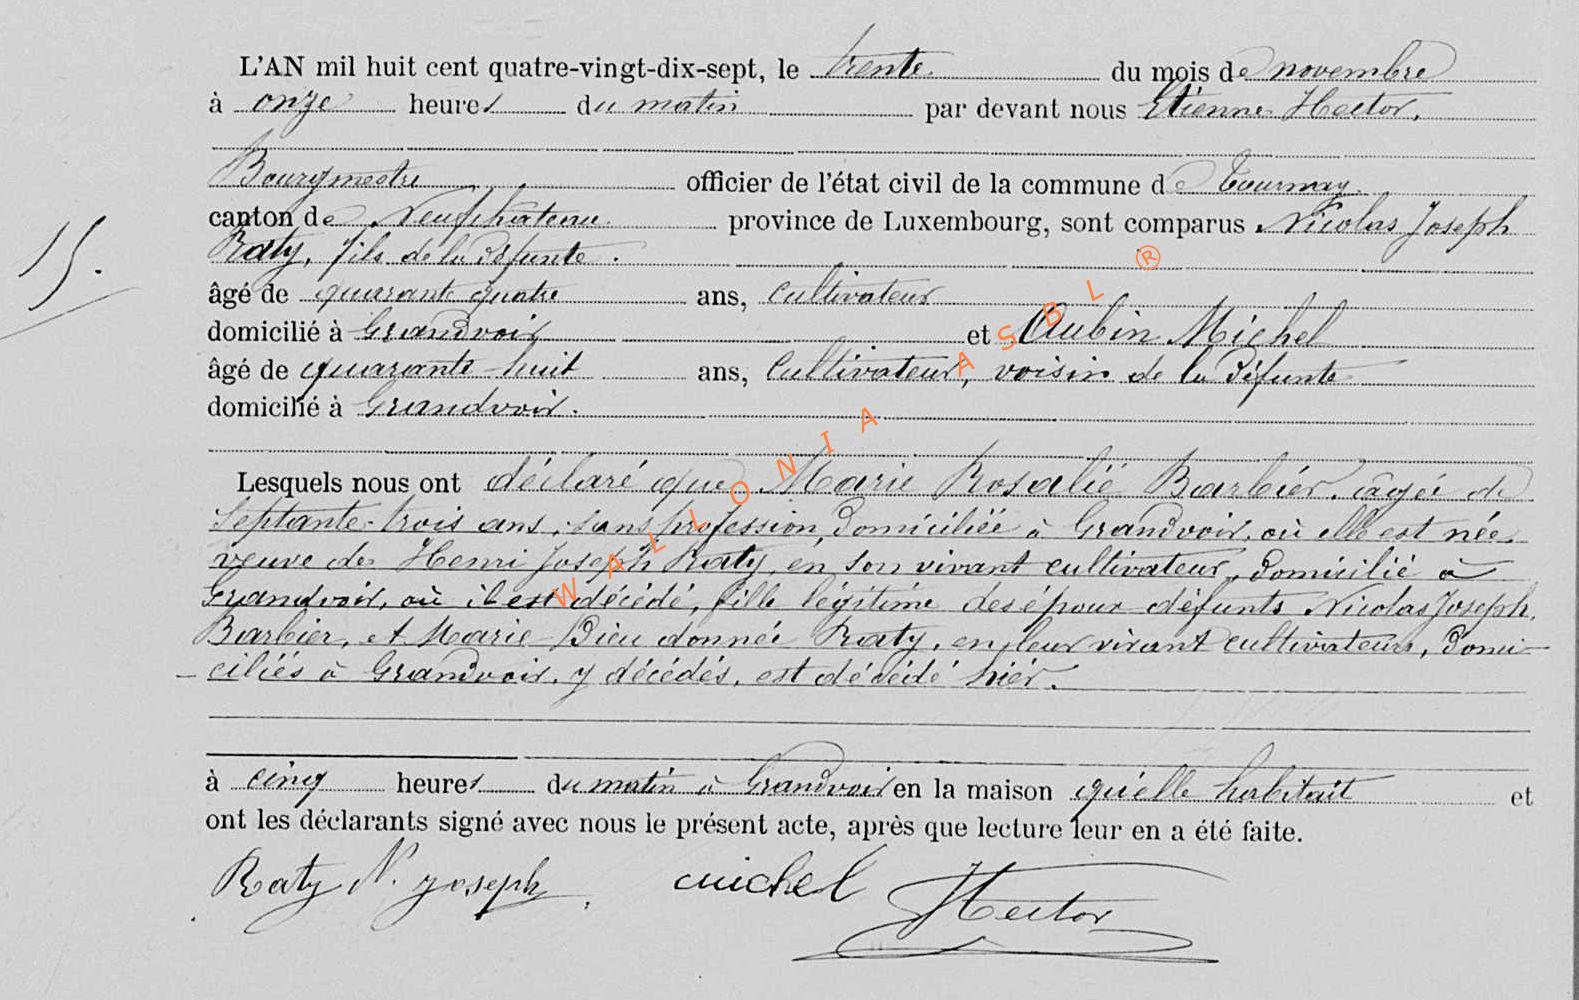 L'AN mil huit cent quatre-vingt-dix-sept, le trente du mois de novembre
à onze heures du matin par devant nous Etienne Hector,
Bourgmestre officier de l'état civil de la commune de Tournay
canton de Neufchâteau province de Luxembourg, sont comparus Nicolas Joseph
15.
Raty, fils de la défunte.
âgé de quarante quatre ans, cultivateur
domicilié à Grandvoir et Aubin Michel
âgé de quarante-huit ans, cultivateur, voisin de la défunte
domicilié à Grandvoir.
Lesquels nous ont déclaré que Marie Rosalie Barbier, agée de
septante-trois ans, sans profession, domiciliée à Grandvoir, où elle est née,
veuve de Henri Joseph Raty, en son vivant cultivateur, domicilié à
Grandvoir, où il est décédé, fille légitime des époux défunts Nicolas Joseph
Barbier, et Marie Dieu donnée Raty, en leur vivant cultivateurs, domi-
-ciliés à Grandvoir, y décédés, est décédé hier.
à cinq heures du matin à Grandvoir en la maison qu'elle habitait et
ont les déclarants signé avec nous le présent acte, après que lecture leur en a été faite.
Raty N. Joseph. Michel Hector
WALLONIA ASBL ®